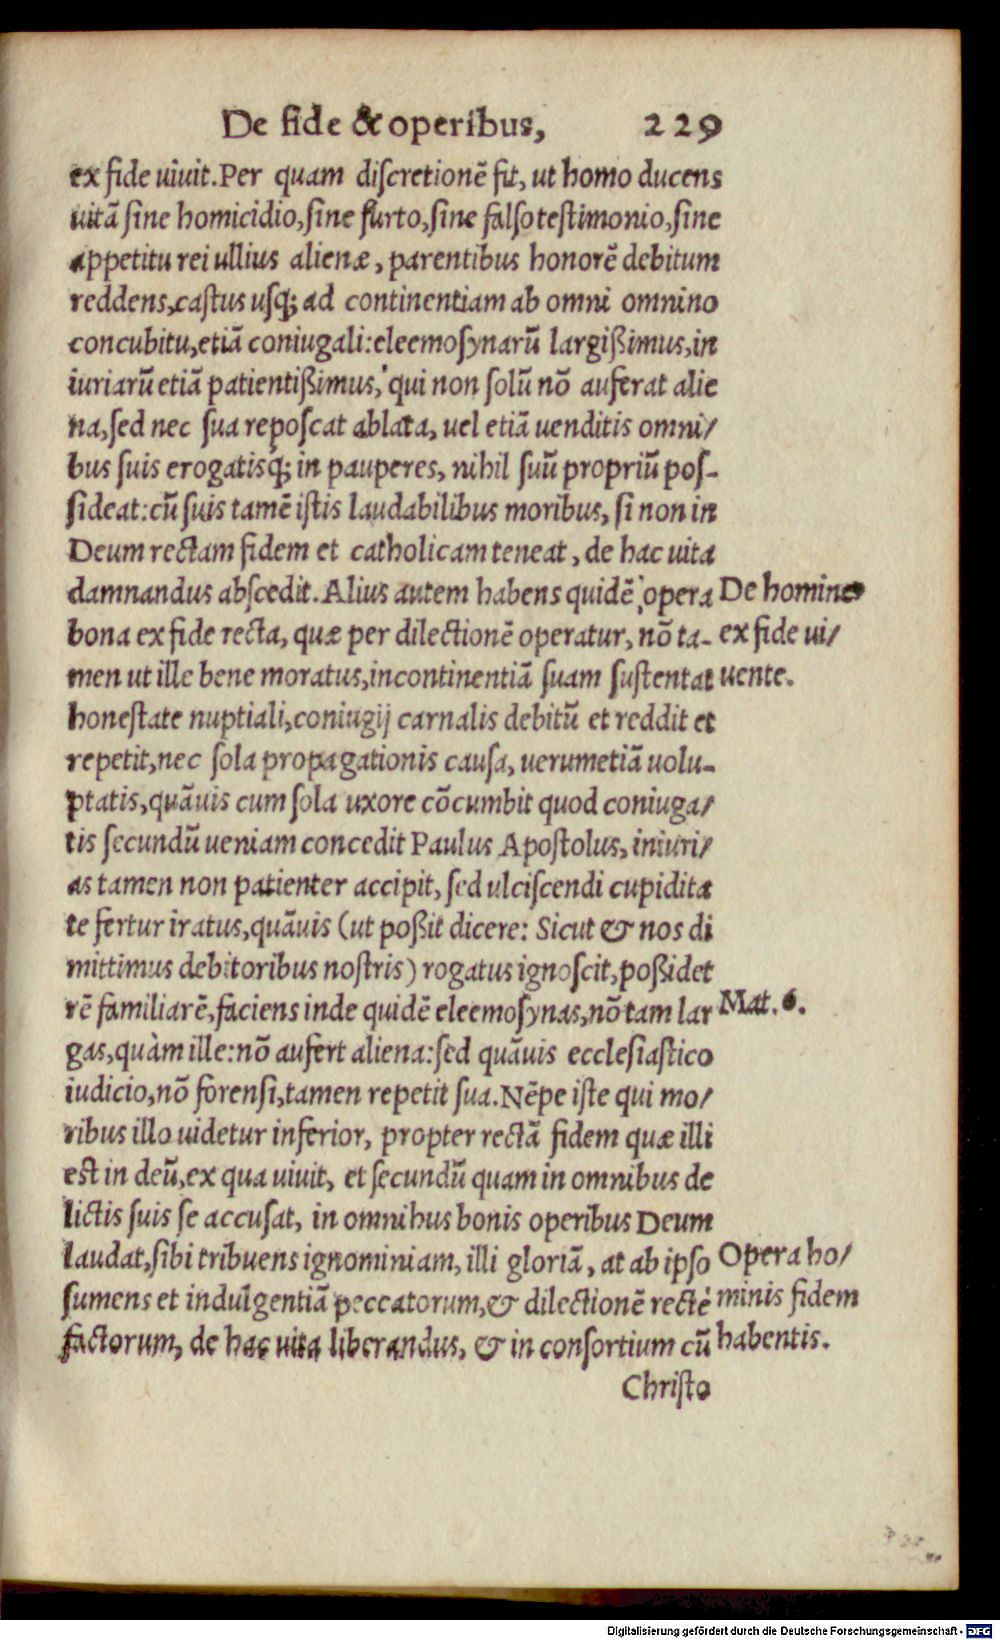 De fide & operibus, 229
ex fide uiuit. Per quam discretionē fit, ut homo ducens
uitā sine homicidio, sine furto, sine falso testimonio, sine
appetitu rei ullius alienæ, parentibus honorē debitum
reddens, castus usq; ad continentiam ab omni omnino
concubitu, etiā coniugali: eleemosynarū largißimus, in
iuriarū etiā patientißimus, qui non solū nō auferat alie
na, sed nec sua reposcat ablata, uel etiā uenditis omni/
bus suis erogatisq; in pauperes, nihil suū propriū pos-
sideat: cū suis tamē istis laudabilibus moribus, si non in
Deum rectam fidem et catholicam teneat, de hac uita
damnandus abscedit. Alius autem habens quidē opera
bona ex fide recta, quæ per dilectionē operatur, nō ta-
men ut ille bene moratus, incontinentiā suam sustentat
honestate nuptiali, coniugij carnalis debitū et reddit et
repetit, nec sola propagationis causa, uerumetiā uolu-
ptatis, quāuis cum sola uxore cōcumbit quod coniuga/
tis secundū ueniam concedit Paulus Apostolus, iniuri/
as tamen non patienter accipit, sed ulciscendi cupidita
te fertur iratus, quāuis (ut poßit dicere: Sicut & nos di
mittimus debitoribus nostris) rogatus ignoscit, poßidet
rē familiarē, faciens inde quidē eleemosynas, nō tam lar
gas, quàm ille: nō aufert aliena: sed quāuis ecclesiastico
iudicio, nō forensi, tamen repetit sua. Nēpe iste qui mo/
ribus illo uidetur inferior, propter rectā fidem quæ illi
est in deū, ex qua uiuit, et secundū quam in omnibus de
lictis suis se accusat, in omnibus bonis operibus Deum
laudat, sibi tribuens ignominiam, illi gloriā, at ab ipso
sumens et indulgentiā peccatorum, & dilectionē rectè
factorum, de hac uita liberandus, & in consortium cū
Christo
De homine
ex fide ui/
uente.
Mat. 6.
Opera ho/
minis fidem
habentis.
Digitalisierung gefördert durch die Deutsche Forschungsgemeinschaft - DFG